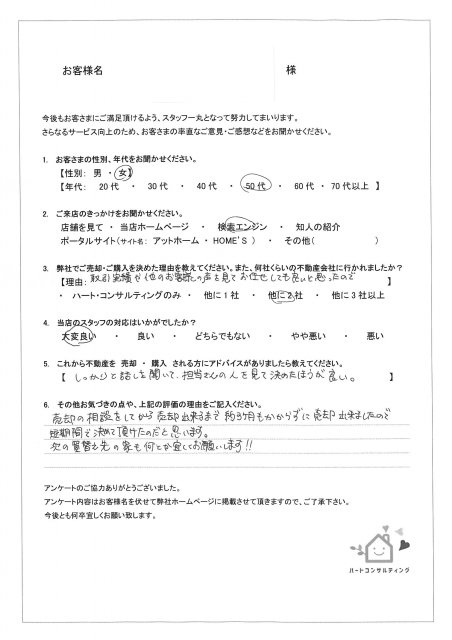 お客様名 様
今後もお客さまにご満足頂けるよう、スタッフ一丸となって努力してまいります。
さらなるサービス向上のため、お客さまの率直なご意見・ご感想などをお聞かせください。
1. お客さまの性別、年代をお聞かせください。
【性別: 男 ・ 女】
【年代: 20代 ・ 30代 ・ 40代 ・ 50代 ・ 60代 ・ 70代以上 】
2. ご来店のきっかけをお聞かせください。
店舗を見て ・ 当店ホームページ ・ 検索エンジン ・ 知人の紹介
ポータルサイト(サイト名: アットホーム ・ HOME'S ) ・ その他( )
3. 弊社でご売却・ご購入を決めた理由を教えてください。また、何社くらいの不動産会社に行かれましたか?
【理由: 取引実績や他のお客様の声を見てお任せしても良いと思ったので 】
・ ハート・コンサルティングのみ ・ 他に1社 ・ 他に2社 ・ 他に3社以上
4. 当店のスタッフの対応はいかがでしたか?
大変良い ・ 良い ・ どちらでもない ・ やや悪い ・ 悪い
5. これから不動産を 売却 ・ 購入 される方にアドバイスがありましたら教えてください。
【 しっかりと話しを聞いて、担当さんの人を見て決めたほうが良い。 】
6. その他お気づきの点や、上記の評価の理由をご記入ください。
売却の相談をしてから売却出来るまで約3ヶ月もかからずに売却出来ましたので
短期間で決めて頂けたのだと思います。
次の買替え先の家も何とか宜しくお願いします!!
アンケートのご協力ありがとうございました。
アンケート内容はお客様名を伏せて弊社ホームページに掲載させて頂きますので、ご了承下さい。
今後とも何卒宜しくお願い致します。
ハートコンサルティング